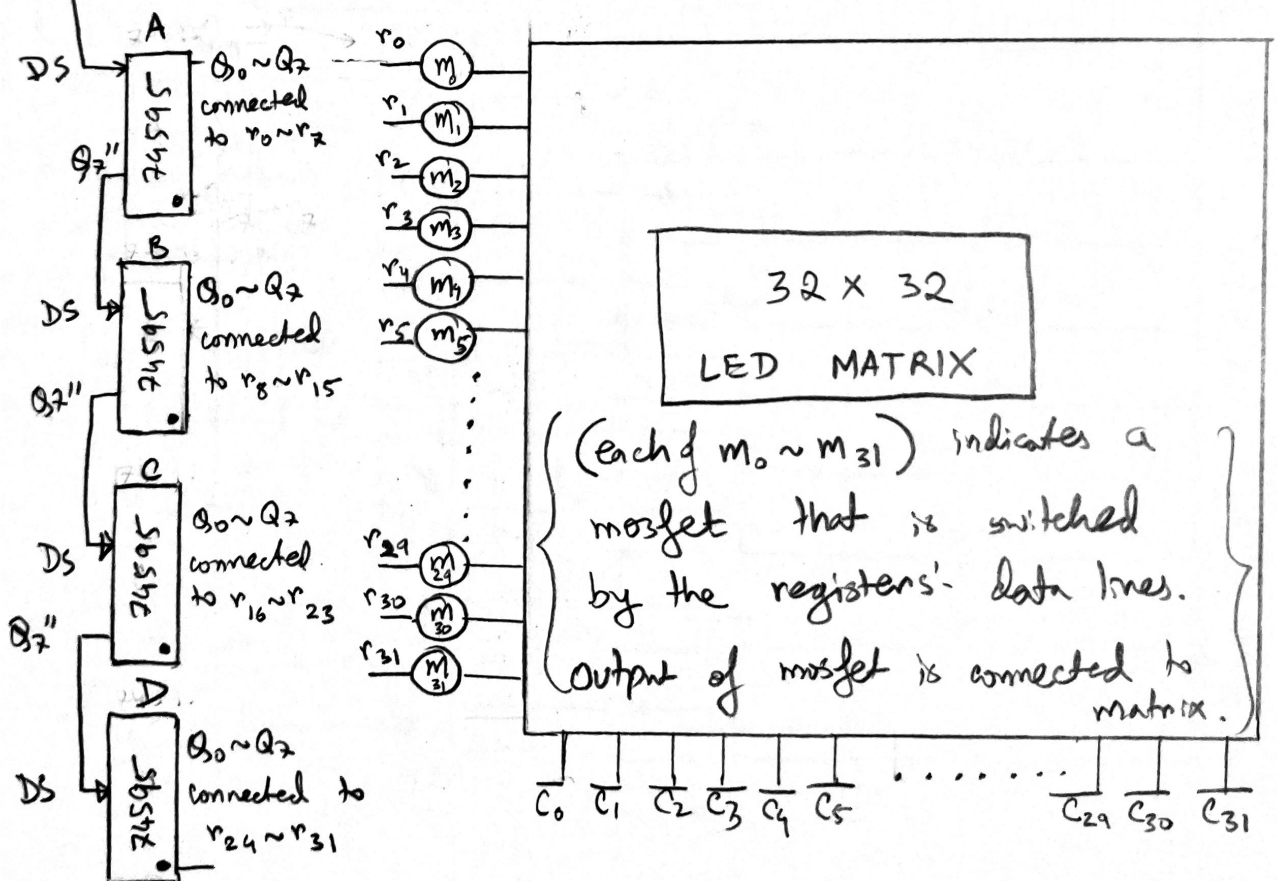 A
DS
74595
Q0 ~ Q7
connected
to r0 ~ r7
Q7''
B
DS
74595
Q0 ~ Q7
connected
to r8 ~ r15
Q7''
C
DS
74595
Q0 ~ Q7
connected
to r16 ~ r23
Q7''
D
DS
74595
Q0 ~ Q7
connected to
r24 ~ r31
r0 m0
r1 m1
r2 m2
r3 m3
r4 m4
r5 m5
r29 m29
r30 m30
r31 m31
32 x 32
LED MATRIX
(each of m0 ~ m31) indicates a
mosfet that is switched
by the registers' data lines.
output of mosfet is connected to
matrix.
C0 C1 C2 C3 C4 C5 ........ C29 C30 C31